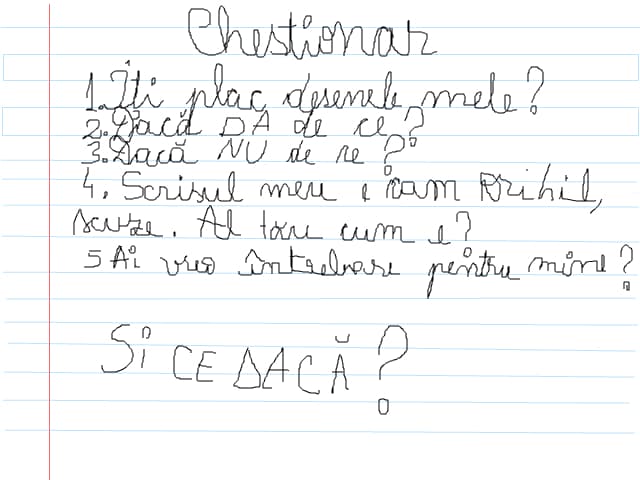 Chestionar
1. Îți plac desenele mele?
2. Dacă DA de ce?
3. Dacă NU de ce?
4. Scrisul meu e cam oribil,
scuze. Al tău cum e?
5 Ai vreo întrebare pentru mine?
Si CE DACĂ?